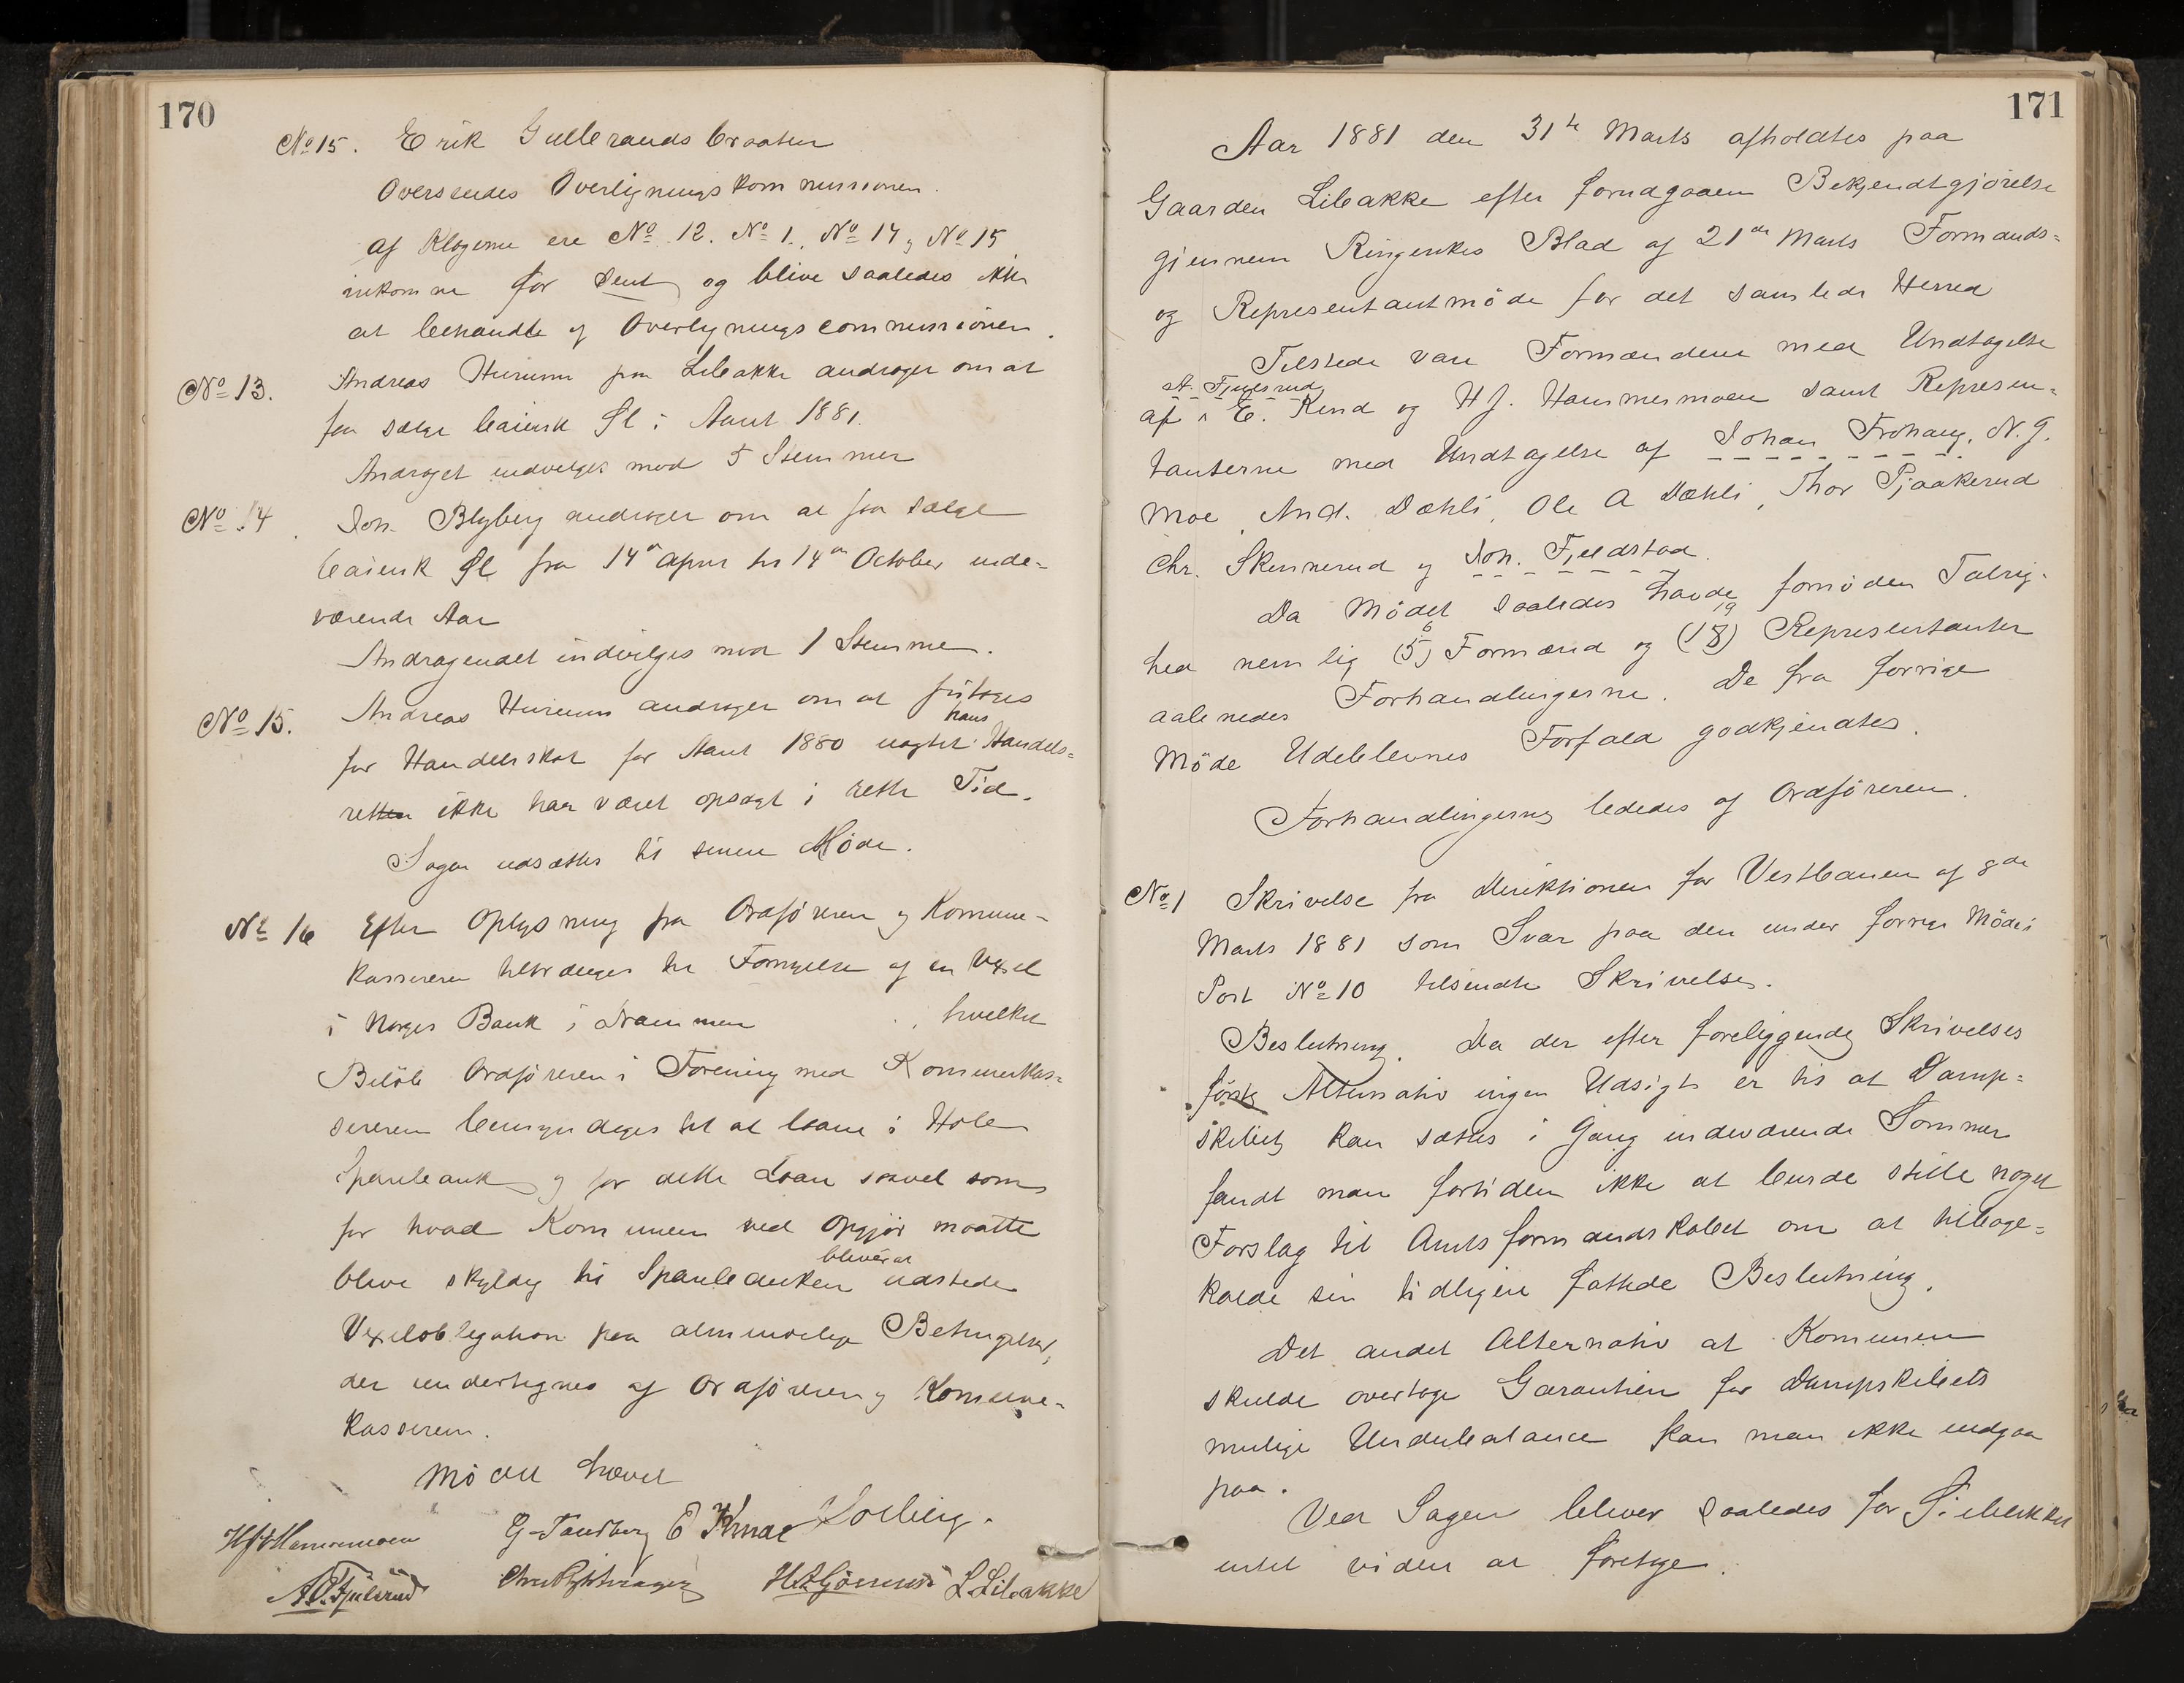 170
No 15. Erik Gullerands Braaten
Oversendes Overligningskommissionen.
af Klagerne ere No 12. No 1., No 14 og No 15
inkomne for sent og blive saaledes ikke
at behandle af Overligningscommissionen.
No 13. Andreas Hurum paa Libakke andrager om at
faa sælge baiersk Øl i Aaret 1881.
Androget indvilges mod 5 Stemmer
No 14. Joh. Blyberg androger om at faa sælge
baiersk Øl fra 14de April til 14de October inde-
værende Aar
Andragendet indvilges mod 1 Stemme.
No 15. Andreas Hurum androger om at fritages
for Handelsskat for Aaret 1880 uagtet hans Handels-
retten ikke har været opsagt i rette Tid.
Sagen udsættes til senere Møde.
No 16 Efter Oplysning fra Ordføreren og Komune-
kassereren tiltrænges til Fornyelse af en Vexel
i Norges Bank i Drammen , hvilket
Beløb Ordføreren i Forening med Kommunekas-
sereren bemyndiges til at laane i Hole
Sparebank og for dette Laan saavel som
for hvad Kommunen ved Opgjør maatte
blive skyldig til Sparebanken bliver at udstede
Vexelobligation paa almindelige Betingelser,
der undertegnes af Ordføreren og Komune-
kassereren.
Mødet hævet
H J Hammermoen G Tandberg E Kinde Solberg.
A. O. Fjulsrud L. Libakke
171
Aar 1881 den 31te Marts afholdtes paa
Gaarden Libakke efter forudgaaen Bekjendtgjørelse
gjennem Ringerikes Blad af 21de Marts Formands-
og Representantmöde for det samlede Herred
Tilstede vare Formændene med Undtagelse
af A. Fjulsrud, E. Kind og H J. Hammermoen samt Represen-
tanterne med Undtagelse af Johan Frøhaug, N. J.
Moe, And. Dæhli, Ole A Dæhli, Thor Pjaakerud
Chr. Skinnerud og Joh. Fjeldstad.
Da Mödet saaledes havde fornöden Talrig-
hed nemlig (5) 6 Formænd og (18) 19 Representanter
aabnedes Forhandlingerne. De fra forrige
Möde Udeblevnes Forfald godkjendtes.
Forhandlingerne lededes af Ordföreren.
No 1 Skrivelse fra Direktionen for Vestbanen af 8de
Marts 1881 som Svar paa den under forrige Mödes
Post No 10 tilsendte Skrivelse.
Beslutning. Da der efter foreliggende Skrivelses
förste Alternativ ingen Udsigt er til at Damp-
skibet kan sættes i Gang indeværende Sommer
fandt man fortiden ikke at burde stille noget
Forslag til Amtsformandskabet om at tilbage-
kalde sin tidligere fattede Beslutning.
Det andet Alternativ at Komunen
skulde overtage Garantien for Dampskibets
mulige Underbalance kan man ikke indgaa
paa.
Ved Sagen bliver saaledes for Öieblikket
intet videre at foretage.